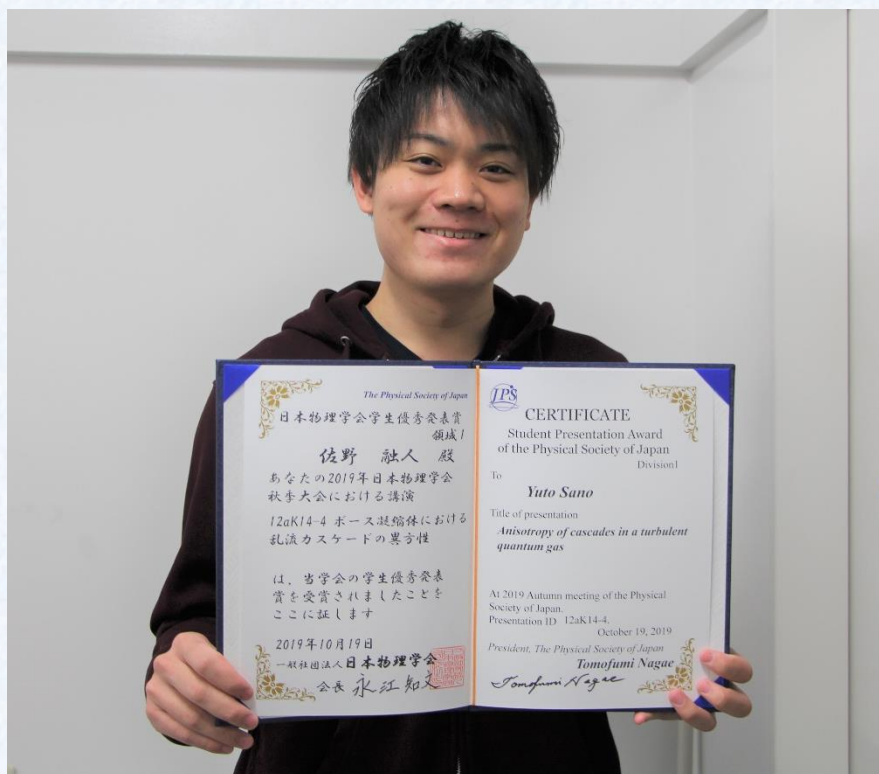 The Physical Society of Japan
日本物理学会学生優秀発表賞
領域1
佐野 融人 殿
あなたの2019年日本物理学会
秋季大会における講演
12aK14-4 ボース凝縮体における
乱流カスケードの異方性
は、当学会の学生優秀発表
賞を受賞されましたことを
ここに証します
2019年10月19日
一般社団法人日本物理学会
会長 永江知文
JPS
CERTIFICATE
Student Presentation Award
of the Physical Society of Japan
Division1
To
Yuto Sano
Title of presentation
Anisotropy of cascades in a turbulent
quantum gas
At 2019 Autumn meeting of the Physical
Society of Japan.
Presentation ID 12aK14-4.
October 19, 2019
President, The Physical Society of Japan
Tomofumi Nagae
Tomofumi Nagae